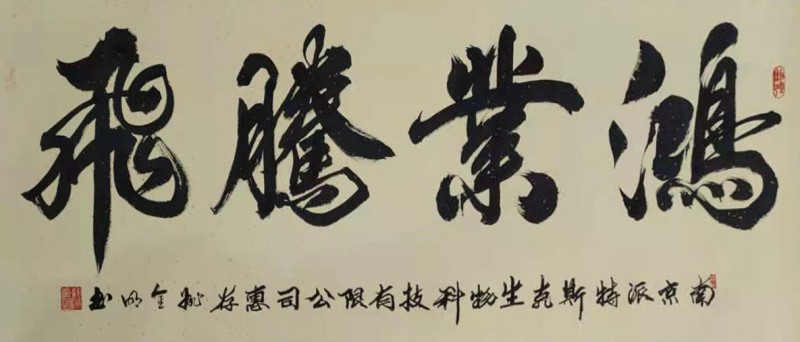 鴻業騰飛
南京派特斯克生物科技有限公司惠存 姚金成书